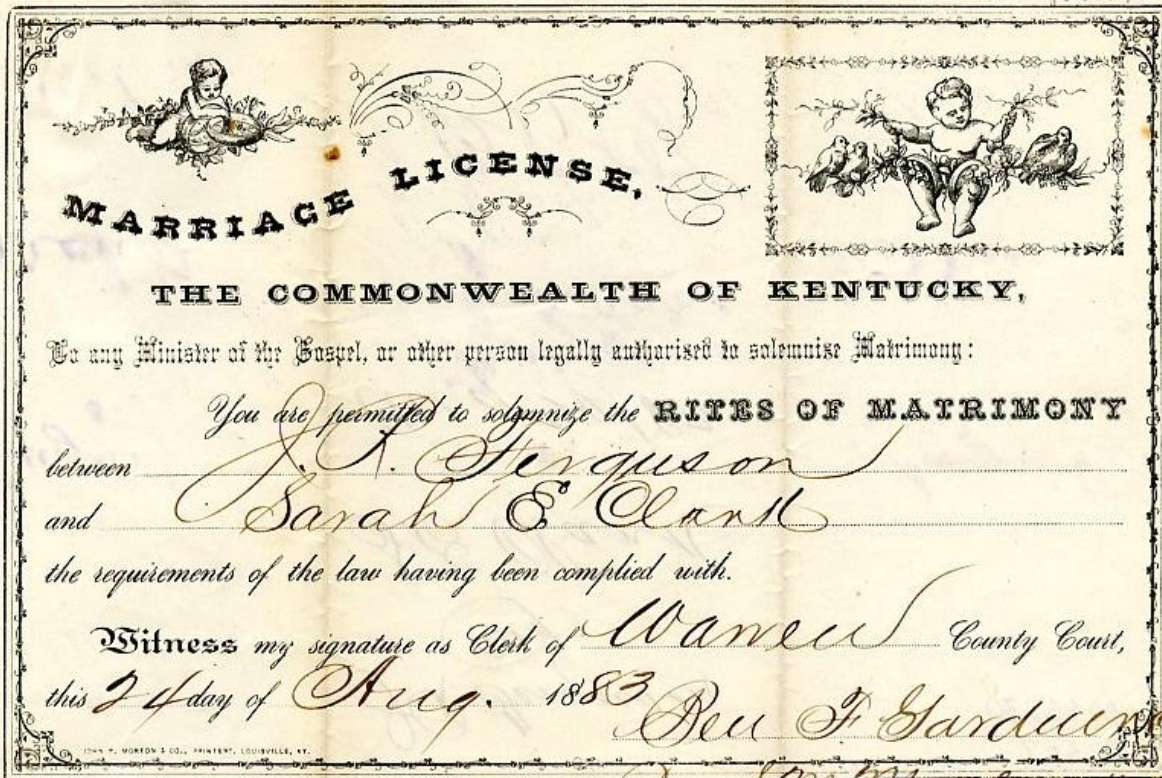 MARRIAGE LICENSE,
THE COMMONWEALTH OF KENTUCKY,
To any Minister of the Gospel, or other person legally authorised to solemnise Matrimony:
You are permitted to solemnize the RITES OF MATRIMONY
between J. R. Ferguson
and Sarah E. Clark
the requirements of the law having been complied with.
Witness my signature as Clerk of Warren County Court,
this 24 day of Aug. 1883
Ben F Gardner
JOHN P. MORTON & CO., PRINTERS, LOUISVILLE, KY.